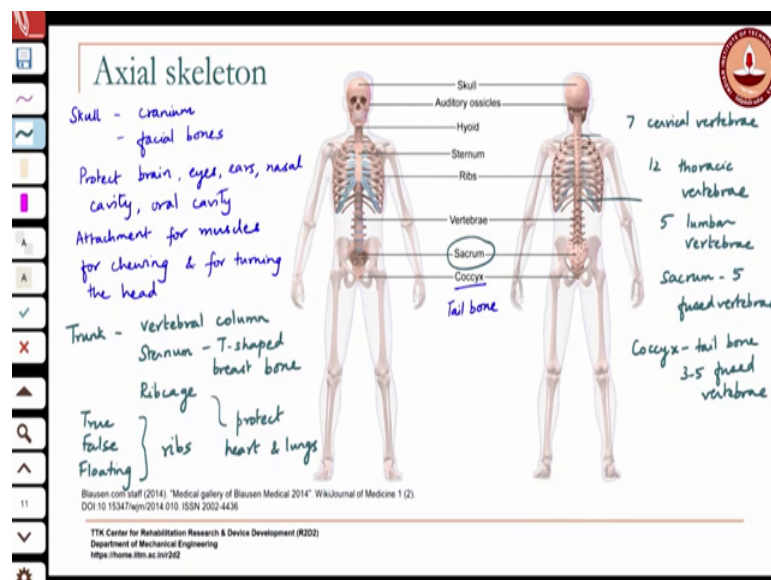 Axial skeleton
Skull - cranium
- facial bones
Protect brain, eyes, ears, nasal
cavity, oral cavity
Attachment for muscles
for chewing & for turning
the head
Trunk - vertebral column
Sternum - T-shaped
breast bone
Ribcage
True
False
Floating
ribs
protect
heart & lungs
Skull
Auditory ossicles
Hyoid
Sternum
Ribs
Vertebrae
Sacrum
Coccyx
Tail bone
7 cervical vertebrae
12 thoracic
vertebrae
5 lumbar
vertebrae
Sacrum - 5
fused vertebrae
Coccyx - tail bone
3-5 fused
vertebrae
Blausen.com staff (2014). "Medical gallery of Blausen Medical 2014". WikiJournal of Medicine 1 (2).
DOI:10.15347/wjm/2014.010. ISSN 2002-4436
TTK Center for Rehabilitation Research & Device Development (R2D2)
Department of Mechanical Engineering
https://home.iitm.ac.in/r2d2
A
A
11